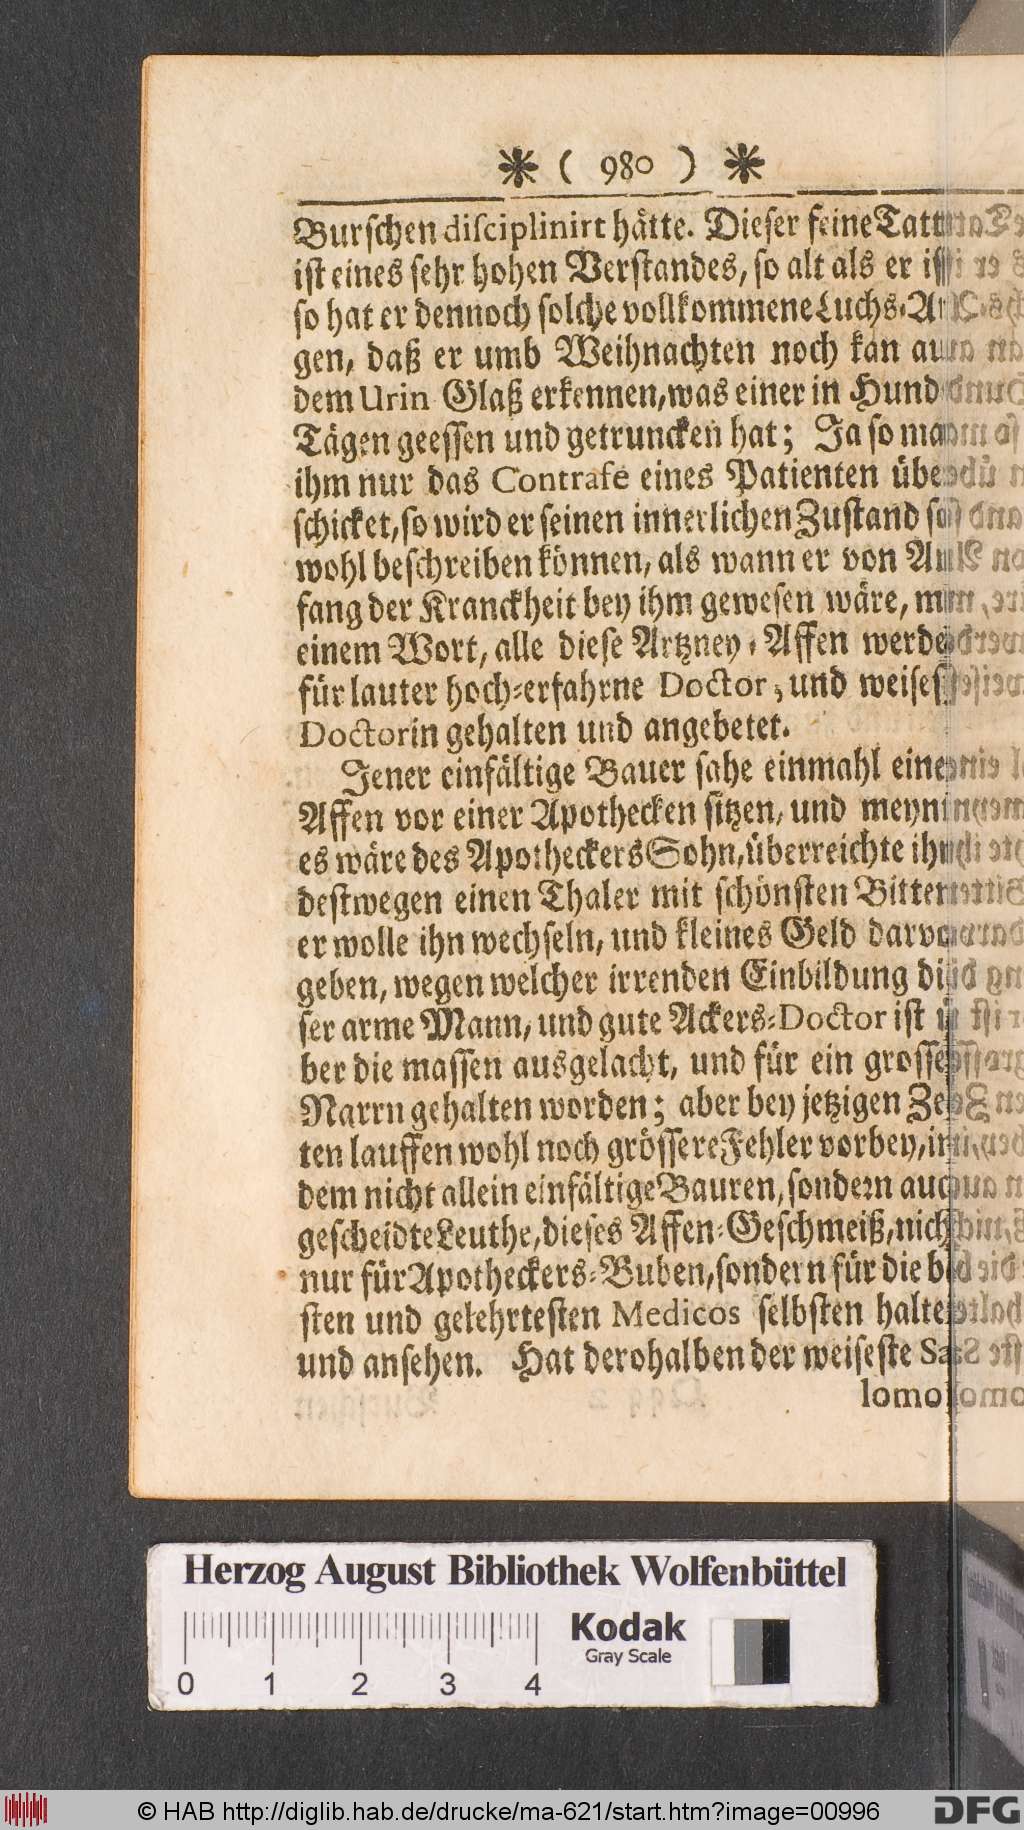 ( 980 )
Burschen disciplinirt hätte. Dieser feine Tatt
ist eines sehr hohen Verstandes, so alt als er ist
so hat er dennoch solche vollkommene Luchs-Au
gen, daß er umb Weihnachten noch kan auß
dem Urin Glaß erkennen, was einer in Hund
Tägen geessen und getruncken hat; Ja so man
ihm nur das Contrafe eines Patienten über
schicket, so wird er seinen innerlichen Zustand so
wohl beschreiben können, als wann er von An
fang der Kranckheit bey ihm gewesen wäre, mit
einem Wort, alle diese Artzney-Affen werden
für lauter hoch-erfahrne Doctor, und weises
Doctorin gehalten und angebetet.
Jener einfältige Bauer sahe einmahl einen
Affen vor einer Apothecken sitzen, und meynt
es wäre des Apotheckers Sohn, überreichte ihm
destwegen einen Thaler mit schönsten Bitten
er wolle ihn wechseln, und kleines Geld darvor
geben, wegen welcher irrenden Einbildung die
ser arme Mann, und gute Ackers-Doctor ist ü
ber die massen ausgelacht, und für ein grossen
Narrn gehalten worden; aber bey jetzigen Zei
ten lauffen wohl noch grössere Fehler vorbey, in
dem nicht allein einfältige Bauren, sondern auch
gescheidte Leuthe, dieses Affen-Geschmeiß, nicht
nur für Apotheckers-Buben, sondern für die be
sten und gelehrtesten Medicos selbsten halten
und ansehen. Hat derohalben der weiseste Sa-
lomo
Herzog August Bibliothek Wolfenbüttel
Kodak
Gray Scale
0 1 2 3 4
© HAB http://diglib.hab.de/drucke/ma-621/start.htm?image=00996
DFG